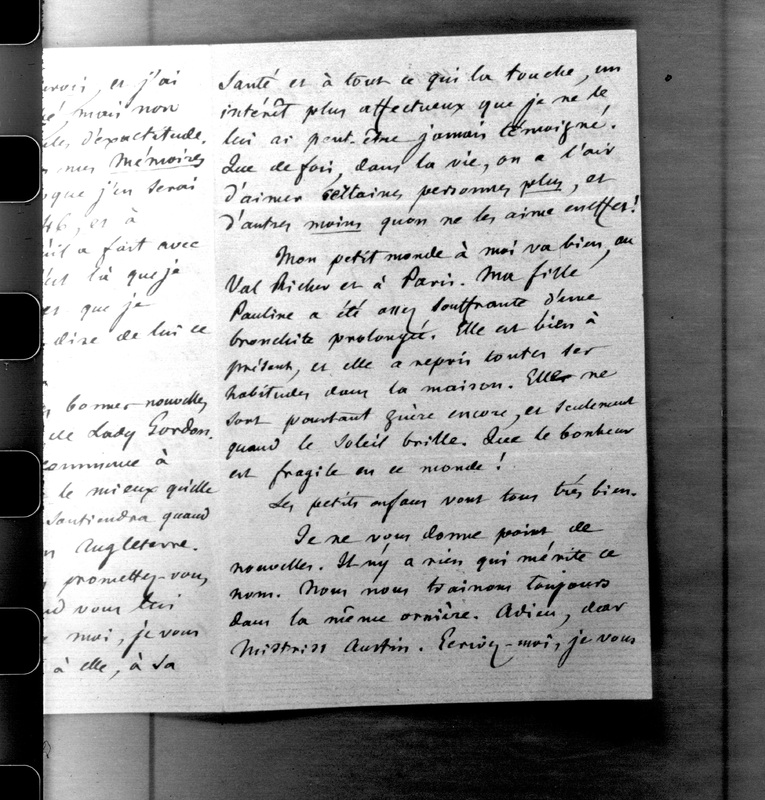 et j'ai
mais non
d'exactitude.
mes Mémoires
que j'en serai
46, et à
a fait avec
là que je
et que je
dire de lui ce
bonnes nouvelles
de Lady Gordon.
commence à
le mieux qu'elle
soutiendra quand
Angleterre.
promettez-vous,
vous lui
moi, je vous
à elle, à sa
santé et à tout ce qui la touche, un
intérêt plus affectueux que je ne le
lui ai peut-être jamais témoigné.
Que de fois, dans la vie, on a l'air
d'aimer certaines personnes plus, et
d'autres moins qu'on ne les aime en effet!
Mon petit monde à moi va bien, au
Val Richer et à Paris. Ma fille
Pauline a été assez souffrante d'une
bronchite prolongée. Elle est bien à
présent, et elle a repris toutes ses
habitudes dans la maison. Elle ne
sort pourtant guère encore, et seulement
quand le soleil brille. Que le bonheur
est fragile en ce monde!
Les petits enfans vont tous très bien.
Je ne vous donne point de
nouvelles. Il n'y a rien qui mérite ce
nom. Nous nous trainons toujours
dans la même ornière. Adieu, dear
Mistriss Austin. Ecrivez-moi, je vous